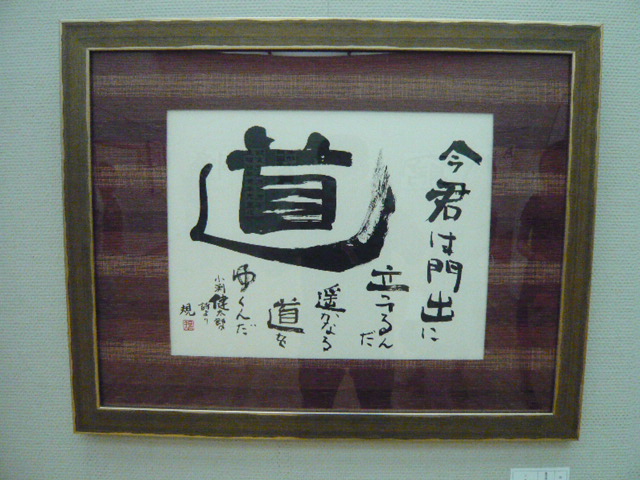 道
今君は門出に
立つるんだ
遥かなる
道を
ゆくんだ
小渕健太郎の
詞より
規